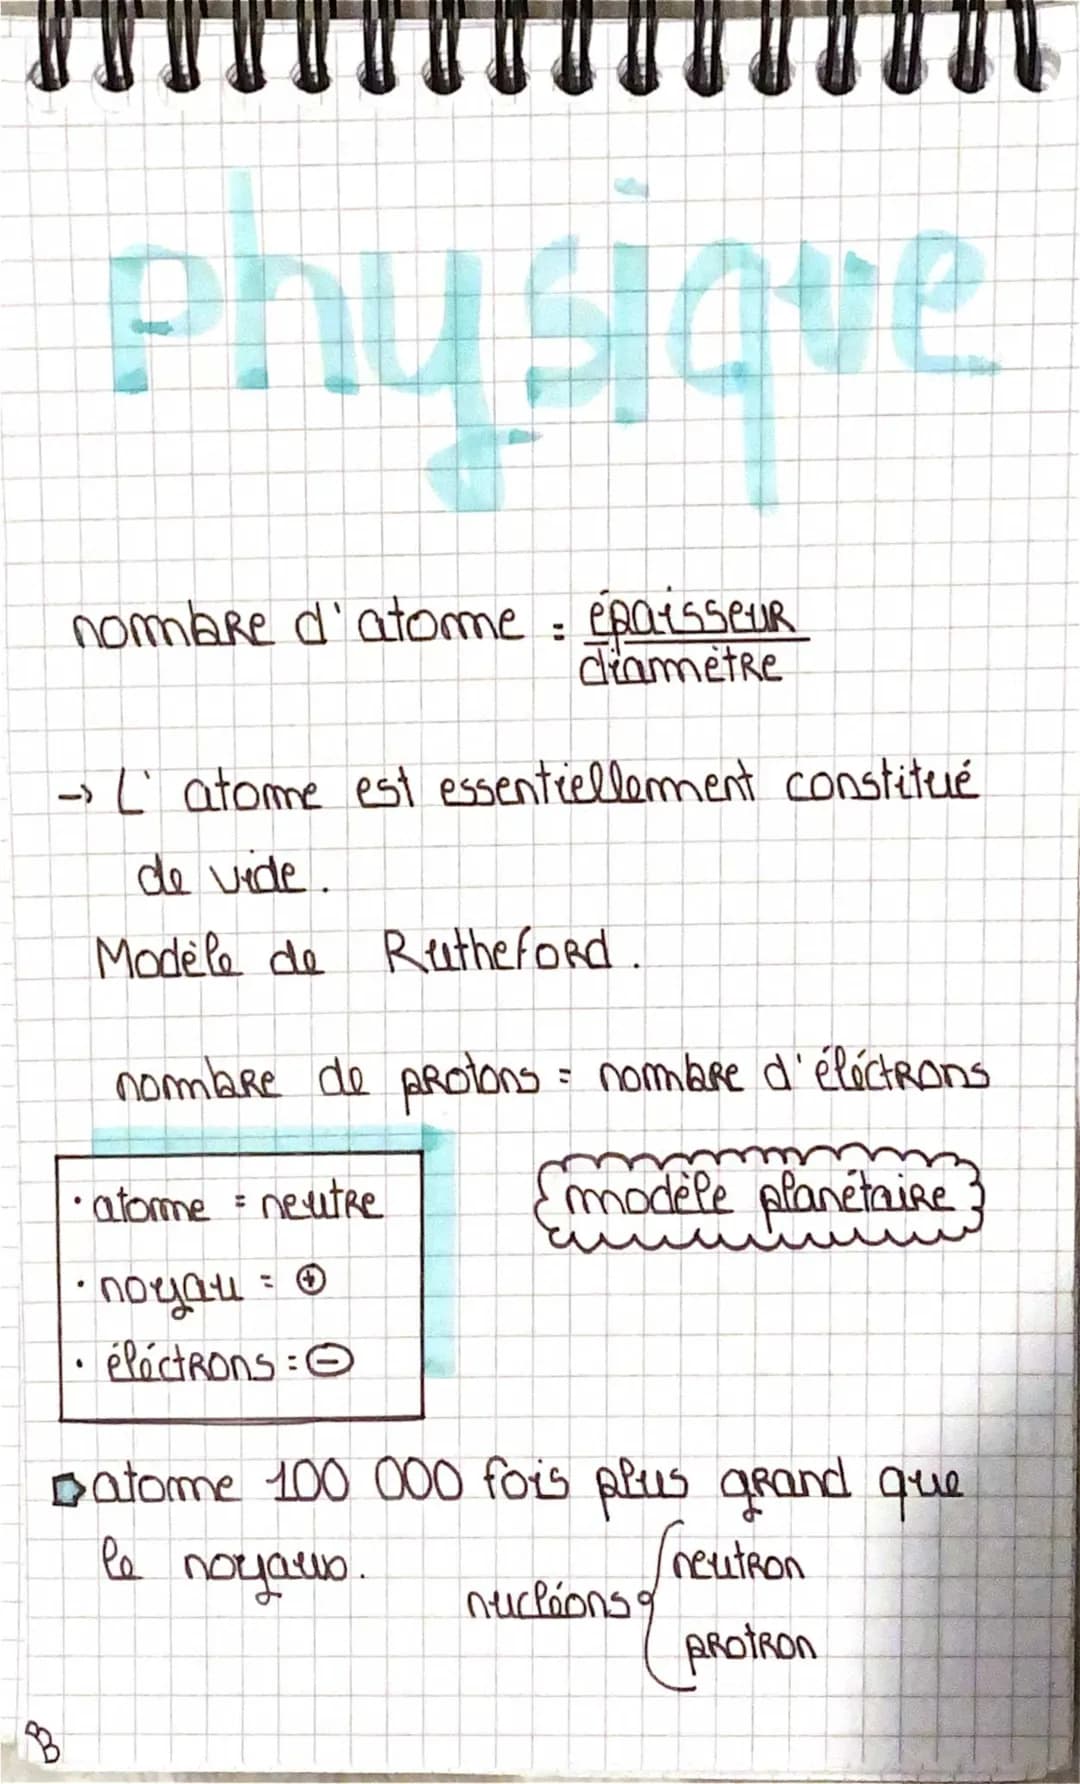 physique
nombre d'atome = épaisseur
diamètre
→ L'atome est essentiellement constitué
de vide.
Modèle de Rutheford.
nombre de protons = nombre d'éléctrons
• atome = neutre
modèle planétaire
• noyau = ⊕
• éléctrons = ⊖
atome 100 000 fois plus grand que
le noyau.
neutron
nucléons
protron
B